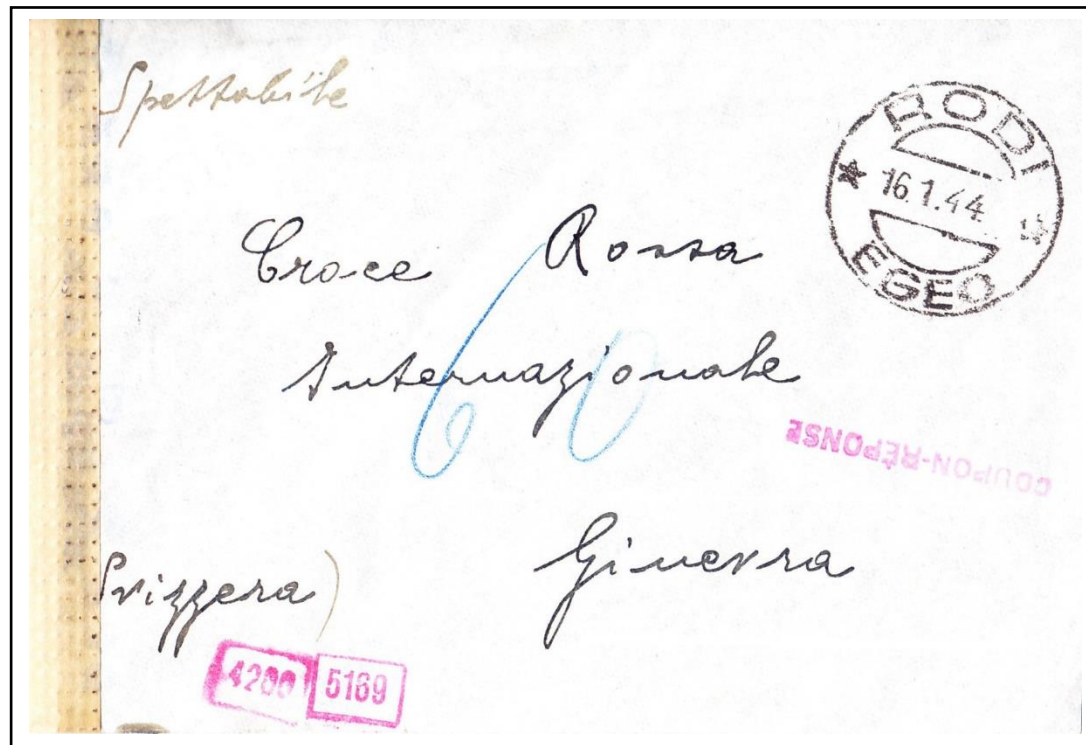 Spettabile
RODI
16.1.44
EGEO
Croce Rossa
60
Internazionale
COUPON-RÉPONSE
Ginevra
Svizzera)
4200 5169